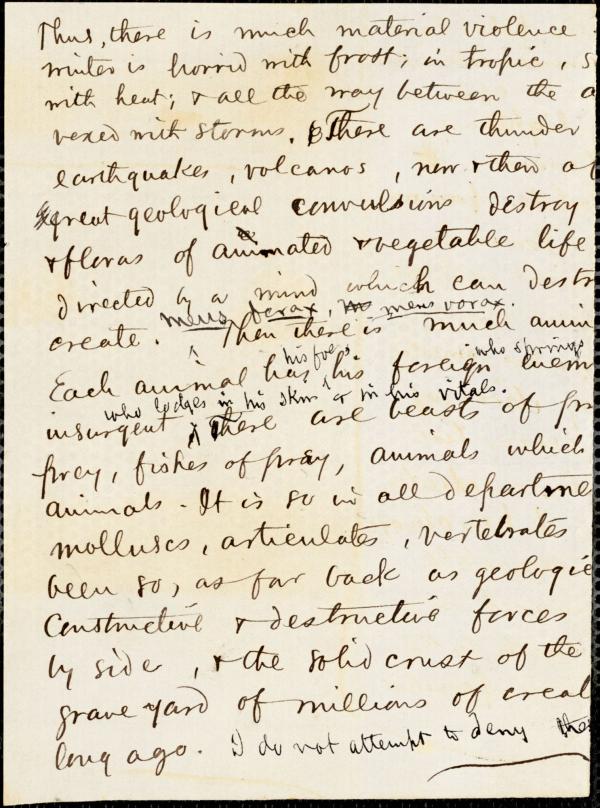 Thus, there is much material violence
winter is horrid with frost; in tropic, s
with heat; & all the way between the a
vexed with storms. There are thunder
earthquakes, volcanos, now & then a
great geological convulsions destroy
& floras of animated & vegetable life
directed by a mind which can destr
mens ferax, mens vorax.
create. Then there is much anim
his foes, who springs
Each animal has his foreign enem
who lodges in his skin & or in his vitals.
insurgent There are beasts of pr
prey, fishes of pray, animals which
animals. It is so in all departme
molluscs, articulates, vertebrates
been so, as far back as geologic
Constructive & destructive forces
by side, & the solid crust of the
grave yard of millions of creat
long ago. I do not attempt to deny